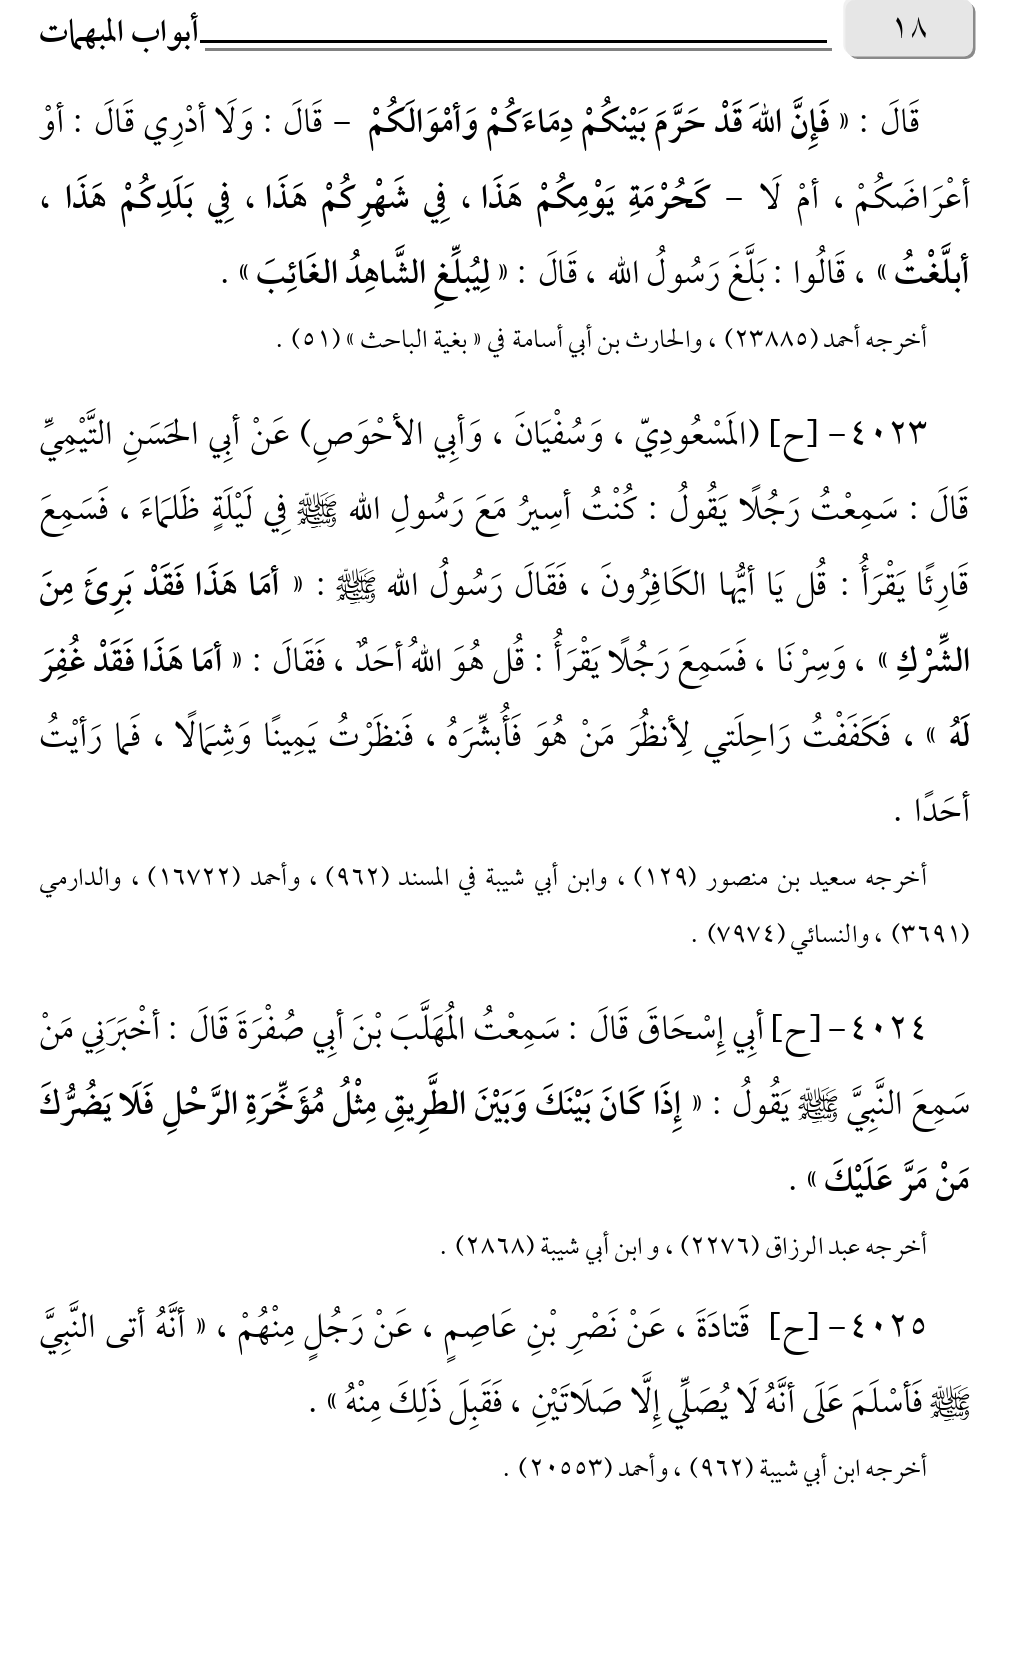 ١٨
أبواب المبهمات
قَالَ : « فَإِنَّ اللهَ قَدْ حَرَّمَ بَيْنَكُمْ دِمَاءَكُمْ وَأمْوَالَكُمْ – قَالَ : وَلَا أدْرِي قَالَ : أوْ
أعْرَاضَكُمْ ، أمْ لَا – كَحُرْمَةِ يَوْمِكُمْ هَذَا ، فِي شَهْرِكُمْ هَذَا ، فِي بَلَدِكُمْ هَذَا ،
أبلَّغْتُ » ، قَالُوا : بَلَّغَ رَسُولُ الله ، قَالَ : « لِيُبلِّغِ الشَّاهِدُ الغَائِبَ » .
أخرجه أحمد (٢٣٨٨٥) ، والحارث بن أبي أسامة في « بغية الباحث » (٥١) .
٤٠٢٣– [ح] (المَسْعُودِيّ ، وَسُفْيَانَ ، وَأبِي الأحْوَصِ) عَنْ أبِي الحَسَنِ التَّيْمِيِّ
قَالَ : سَمِعْتُ رَجُلًا يَقُولُ : كُنْتُ أسِيرُ مَعَ رَسُولِ الله ﷺ فِي لَيْلَةٍ ظَلمَاءَ ، فَسَمِعَ
قَارِئًا يَقْرَأُ : قُل يَا أيُّها الكَافِرُونَ ، فَقَالَ رَسُولُ الله ﷺ : « أمَا هَذَا فَقَدْ بَرِئَ مِنَ
الشِّرْكِ » ، وَسِرْنَا ، فَسَمِعَ رَجُلًا يَقْرَأُ : قُل هُوَ اللهُ أحَدٌ ، فَقَالَ : « أمَا هَذَا فَقَدْ غُفِرَ
لَهُ » ، فَكَفَفْتُ رَاحِلَتي لِأنظُرَ مَنْ هُوَ فَأُبشِّرَهُ ، فَنظَرْتُ يَمِينًا وَشِمَالًا ، فَما رَأيْتُ
أحَدًا .
أخرجه سعيد بن منصور (١٢٩) ، وابن أبي شيبة في المسند (٩٦٢) ، وأحمد (١٦٧٢٢) ، والدارمي
(٣٦٩١) ، والنسائي (٧٩٧٤) .
٤٠٢٤– [ح] أبِي إِسْحَاقَ قَالَ : سَمِعْتُ المُهَلَّبَ بْنَ أبِي صُفْرَةَ قَالَ : أخْبَرَنِي مَنْ
سَمِعَ النَّبِيَّ ﷺ يَقُولُ : « إِذَا كَانَ بَيْنَكَ وَبَيْنَ الطَّرِيقِ مِثْلُ مُؤَخِّرَةِ الرَّحْلِ فَلَا يَضُرُّكَ
مَنْ مَرَّ عَلَيْكَ » .
أخرجه عبد الرزاق (٢٢٧٦) ، و ابن أبي شيبة (٢٨٦٨) .
٤٠٢٥– [ح] قَتادَةَ ، عَنْ نَصْرِ بْنِ عَاصِمٍ ، عَنْ رَجُلٍ مِنْهُمْ ، « أنَّهُ أتى النَّبِيَّ
ﷺ فَأسْلَمَ عَلَى أنَّهُ لَا يُصَلِّي إِلَّا صَلَاتَيْنِ ، فَقَبِلَ ذَلِكَ مِنْهُ » .
أخرجه ابن أبي شيبة (٩٦٢) ، وأحمد (٢٠٥٥٣) .